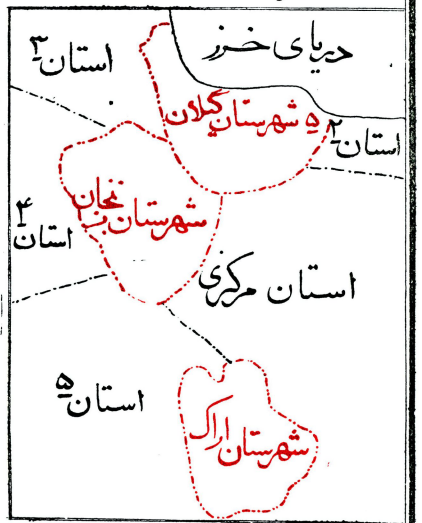 دریای خزر
استان ۳
۵ شهرستان گیلان
استان ۲
شهرستان زنجان
استان ۴
استان مرکزی
استان ۵
شهرستان اراک